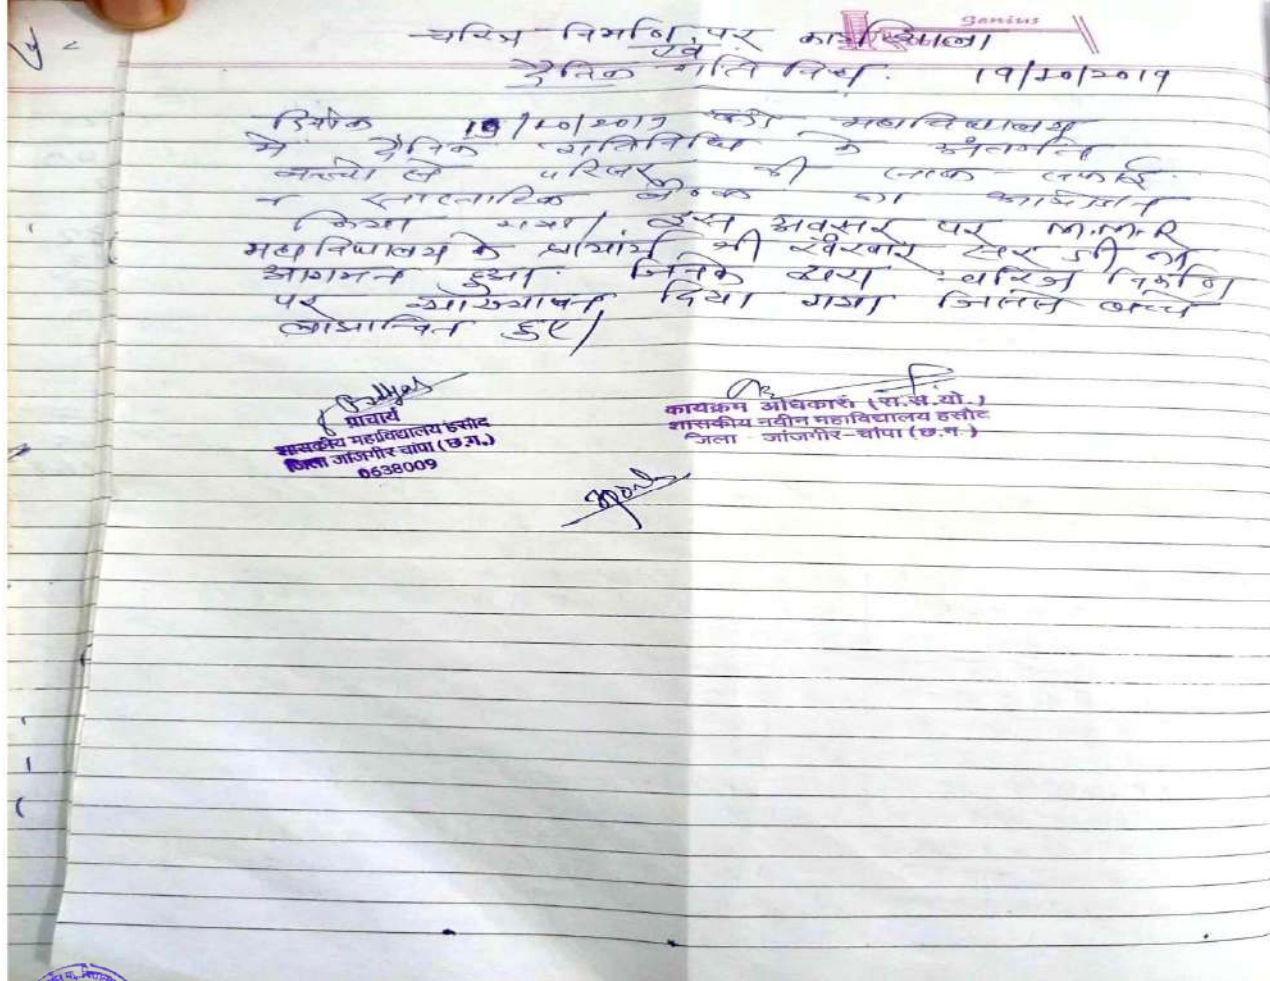 Genius
चरित्र निर्माण पर कार्यशाला
एवं
दैनिक गति विधि 19/10/2019
दिनांक 19/10/2019 को महाविद्यालय
में दैनिक गतिविधि के अंतर्गत
बच्चो ने परिसर की साफ-सफाई
व साप्ताहिक बैठक का आयोजन
किया गया। इस अवसर पर M.M.R
महाविद्यालय के प्राचार्य श्री सर जी का
आगमन हुआ जिनके द्वारा चरित्र निर्माण
पर व्याख्यान दिया गया जिससे बच्चे
लाभान्वित हुए।
प्राचार्य
शासकीय महाविद्यालय हसौद
जिला जांजगीर चांपा (छ.ग.)
0638009
कार्यक्रम अधिकारी (रा.से.यो.)
शासकीय नवीन महाविद्यालय हसौद
जिला - जांजगीर-चांपा (छ.ग.)